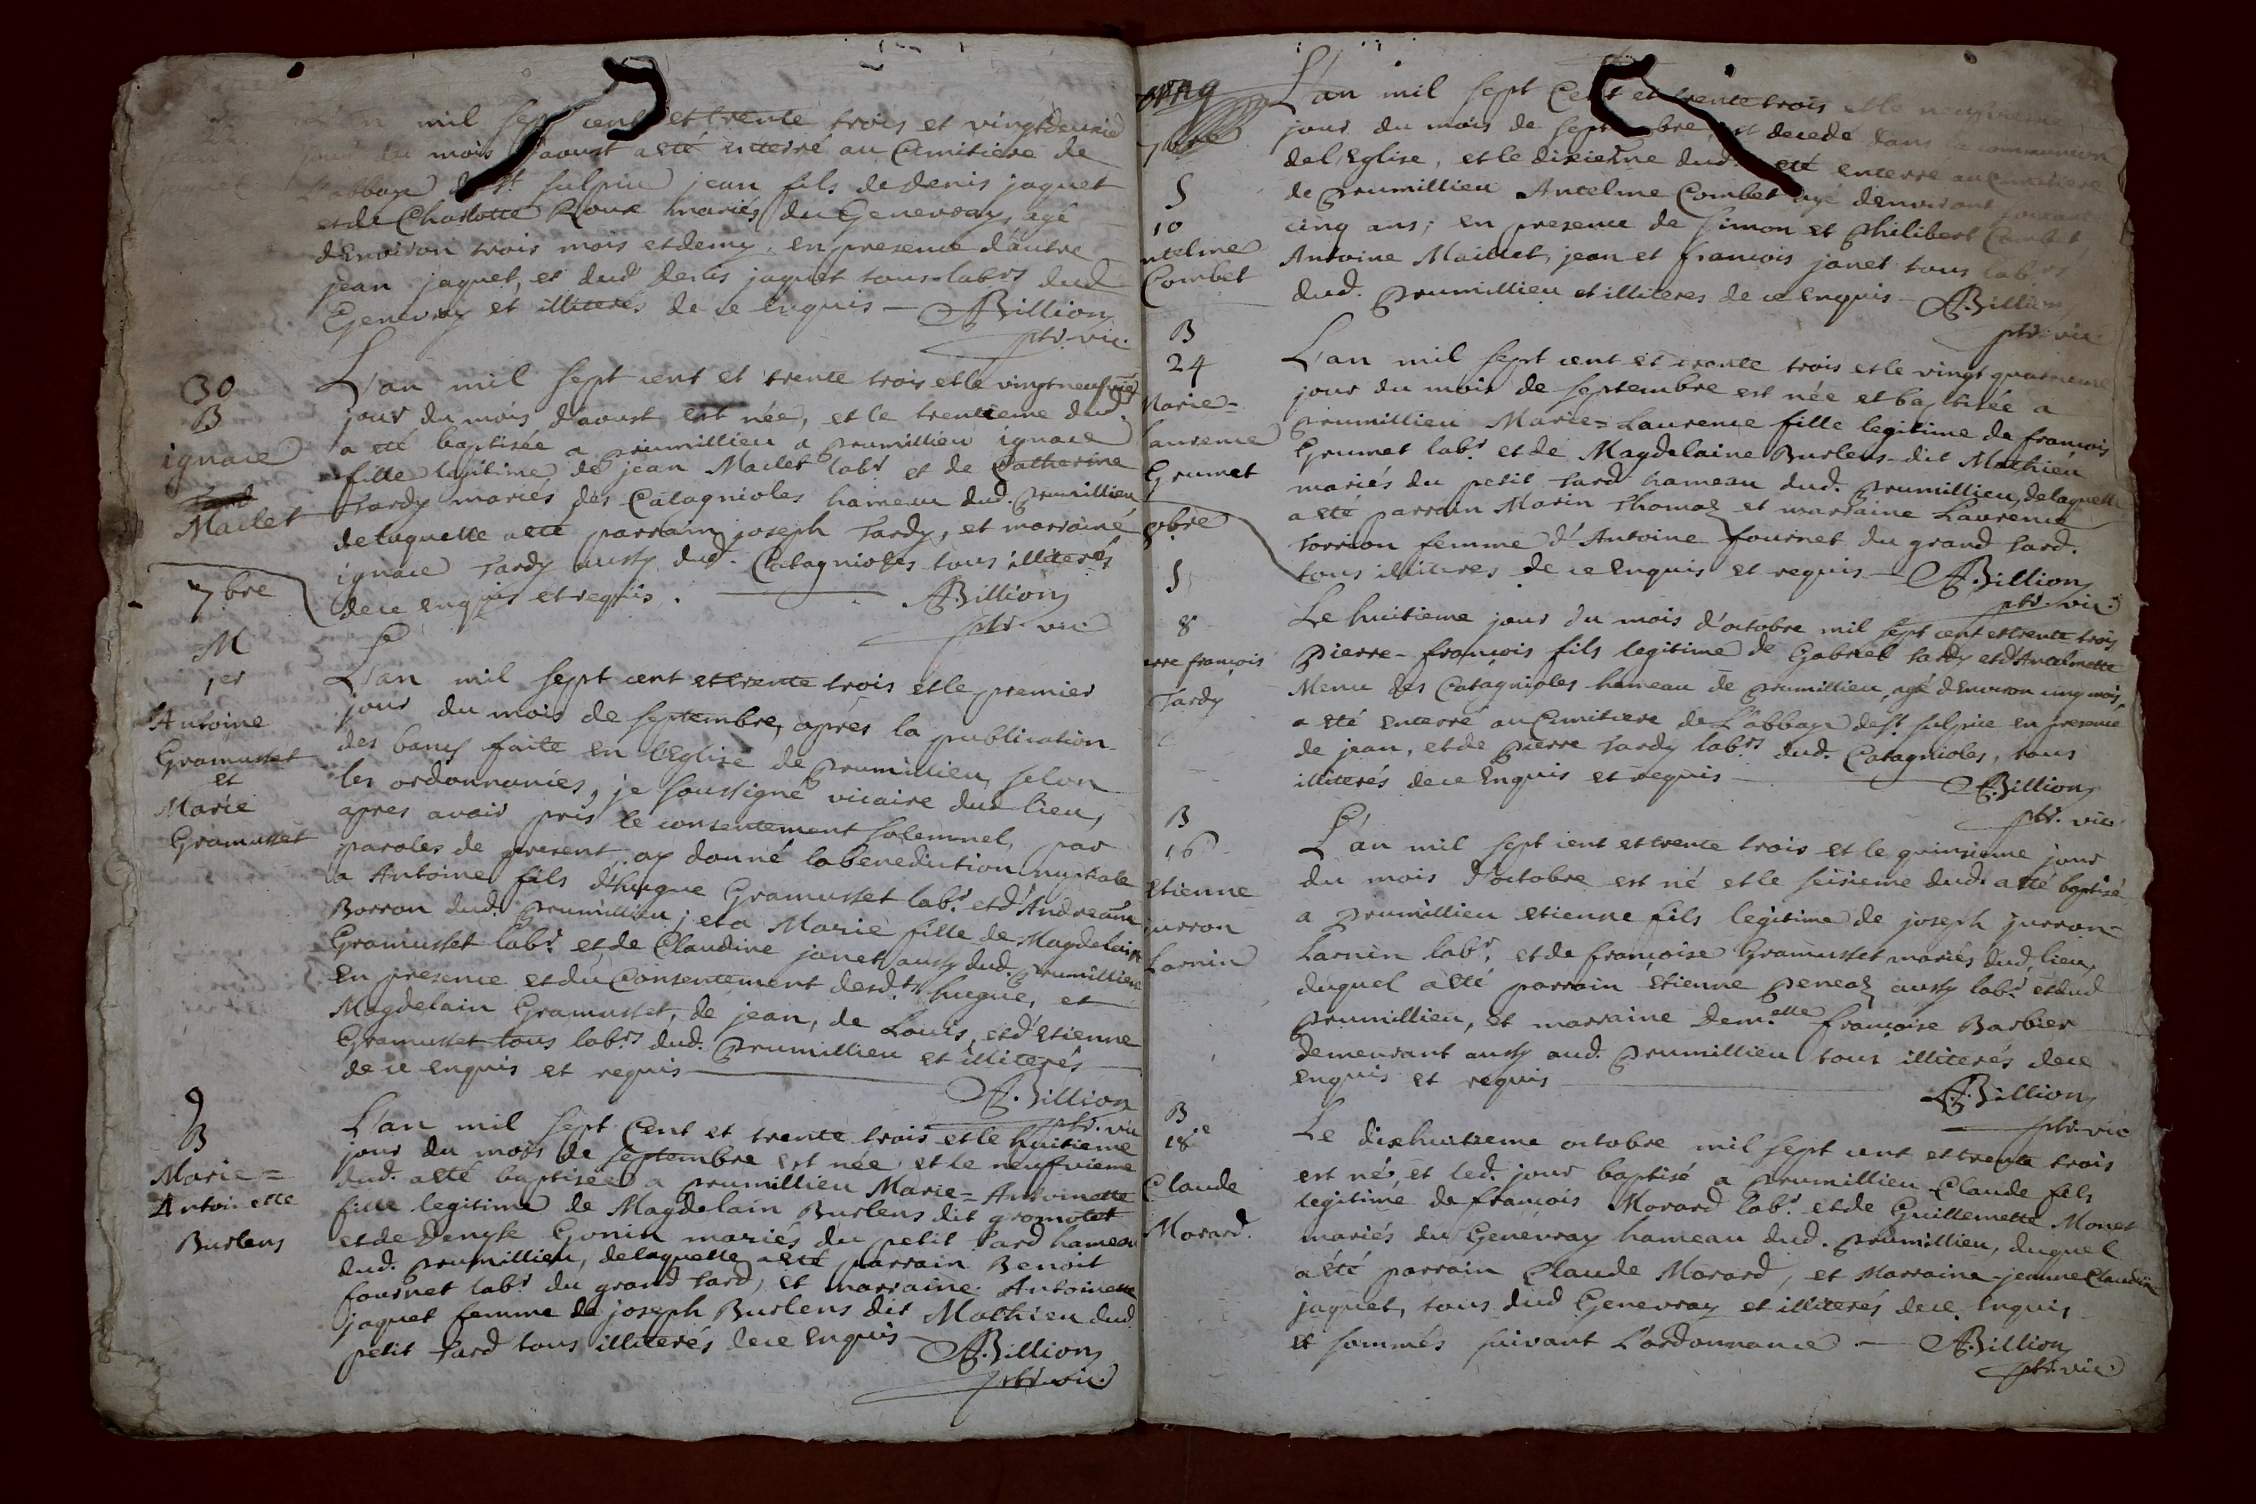 mil sept cent et trente trois et vingtdeuxie
jour du mois daoust a eté enterré au Cimitiere de
l'abbaye de st sulpice jean fils de denis jaquet
et de Charlotte Roux mariés du Genevray, agé
d'Environ trois mois et demy, en presence d'autre
jean jaquet, et dud denis jaquet tous labrs dud
Genevray et illiterés de ce enquis — A. Billion
ptr. vic.
30
B
ignace
Maclet
L'an mil sept cent et trente trois et le vingt neufvie
jour du mois d'aoust est née, et le trentieme dud.
a eté baptisée a prumillieu a prumillieu ignace
fille legitime de jean Maclet labr et de Catherine
Tardy mariés des Catagnioles hameau dud. prumillieu
de laquelle a eté parrain joseph Tardy, et marraine
ignace Tardy aussy dud. Catagnioles tous illiterés
de ce enquis et requis. — A. Billion
ptr. vic
7bre
M
1er
Antoine
Gramusset
et
Marie
Gramusset
L'an mil sept cent et trente trois et le premier
jour du mois de septembre, aprés la publication
des bancs faite en l'Eglise de prumillieu, selon
les ordonnances, je soussigné vicaire dud lieu,
apres avoir pris le consentement solemnel, par
paroles de present, ay donné la benediction nuptiale
a Antoine fils d'hugue Gramusset labr. et d'Andreanne
Borron dud. prumillieu; et a Marie fille de Magdelain
Gramusset labr. et de Claudine janet aussy dud. prumillieu
En presence et du Consentement desdts. hugue, et
Magdelain Gramusset, de jean, de Louis, et d'Etienne
Gramusset tous labrs dud. prumillieu et illiterés
de ce enquis et requis — A. Billion
ptr. vic
9
B
Marie=
Antoinette
Burlens
L'an mil sept Cent et trente trois et le huitieme
jour du mois de septembre est née et le neufvieme
dud. a eté baptisée a prumillieu Marie=Antoinette
fille legitime de Magdelain Burlens dit gromolet
et de Denyse Gonin mariés du petit Tard hameau
dud. prumillieu, de laquelle a eté parrain Benoit
fournet labr du grand Tard, et marraine Antoinette
jaquet femme de joseph Burlens dit Mathieu dud.
petit Tard tous illiterés de ce Enquis A. Billion
ptr. vic.
7bre
S
10
nteline
Combet
L'an mil sept Cent et trente trois et le neufvieme
jour du mois de septembre, est decedé dans la communion
de l'Eglise, et le dixieme dud. eté enterre au Cimitiere
de prumillieu Antelme Combet agé d'environt
cinq ans; en presence de simon et philibert Combet
Antoine Maillet, jean et francois janet tous labrs
dud. prumillieu et illiteres de ce enquis — A. Billion
ptr. vic
B
24
Marie=
laurence
Grumet
L'an mil sept cent et trente trois et le vingt quatrieme
jour du mois de septembre est née et baptisée a
prumillieu Marie=Laurence fille legitime de francois
Grumet labr. et de Magdelaine Burlens dit Mathieu
mariés du petit Tard hameau dud. prumillieu, de laquelle
a eté parrain Marin Thomas et marraine Laurence
Torrion femme d'Antoine fournet du grand Tard.
tous illiteres de ce Enquis et requis — A. Billion
ptr. vic.
8bre
S
8
erre françois
Tardy
Le huitieme jour du mois d'octobre mil sept cent et trente trois
Pierre-françois fils legitime de Gabriel Tardy et d'Antelmette
Menu des Catagnioles hameau de prumillieu, agé d'Environ cinq mois,
a eté enterre au Cimitiere de L'abbaye de st sulpice en presence
de jean, et de pierre Tardy labrs dud. Catagnioles, tous
illiterés de ce Enquis et requis — A. Billion
ptr. vic
B
16
Etienne
jurron
Larnin
L'an mil sept cent et trente trois et le quinsieme jour
du mois d'octobre est né et le seisieme dud. a eté baptisé
a prumillieu etienne fils legitime de joseph jurron
Larnin labr, et de françoise Gramusset mariés dud. lieu,
duquel a eté parrain Etienne peneaz aussy labr. et dud
prumillieu, et marraine Demelle françoise Barbier
demeurant aussy aud. prumillieu tous illiterés de ce
enquis et requis — A. Billion
ptr. vic
B
18e
Claude
Morard.
Le dixhuitieme octobre mil sept cent et trente trois
est né, et led. jour baptisé a prumillieu Claude fils
legitime de françois Morard labr. et de Guillemette Monet
mariés du Genevray hameau dud. prumillieu, duquel
a eté parrain Claude Morard, et Marraine jeanne Claudine
jaquet, tous dud Genevray et illiterés de ce Enquis
et sommés suivant L'ordonnance — A. Billion
ptr. vic